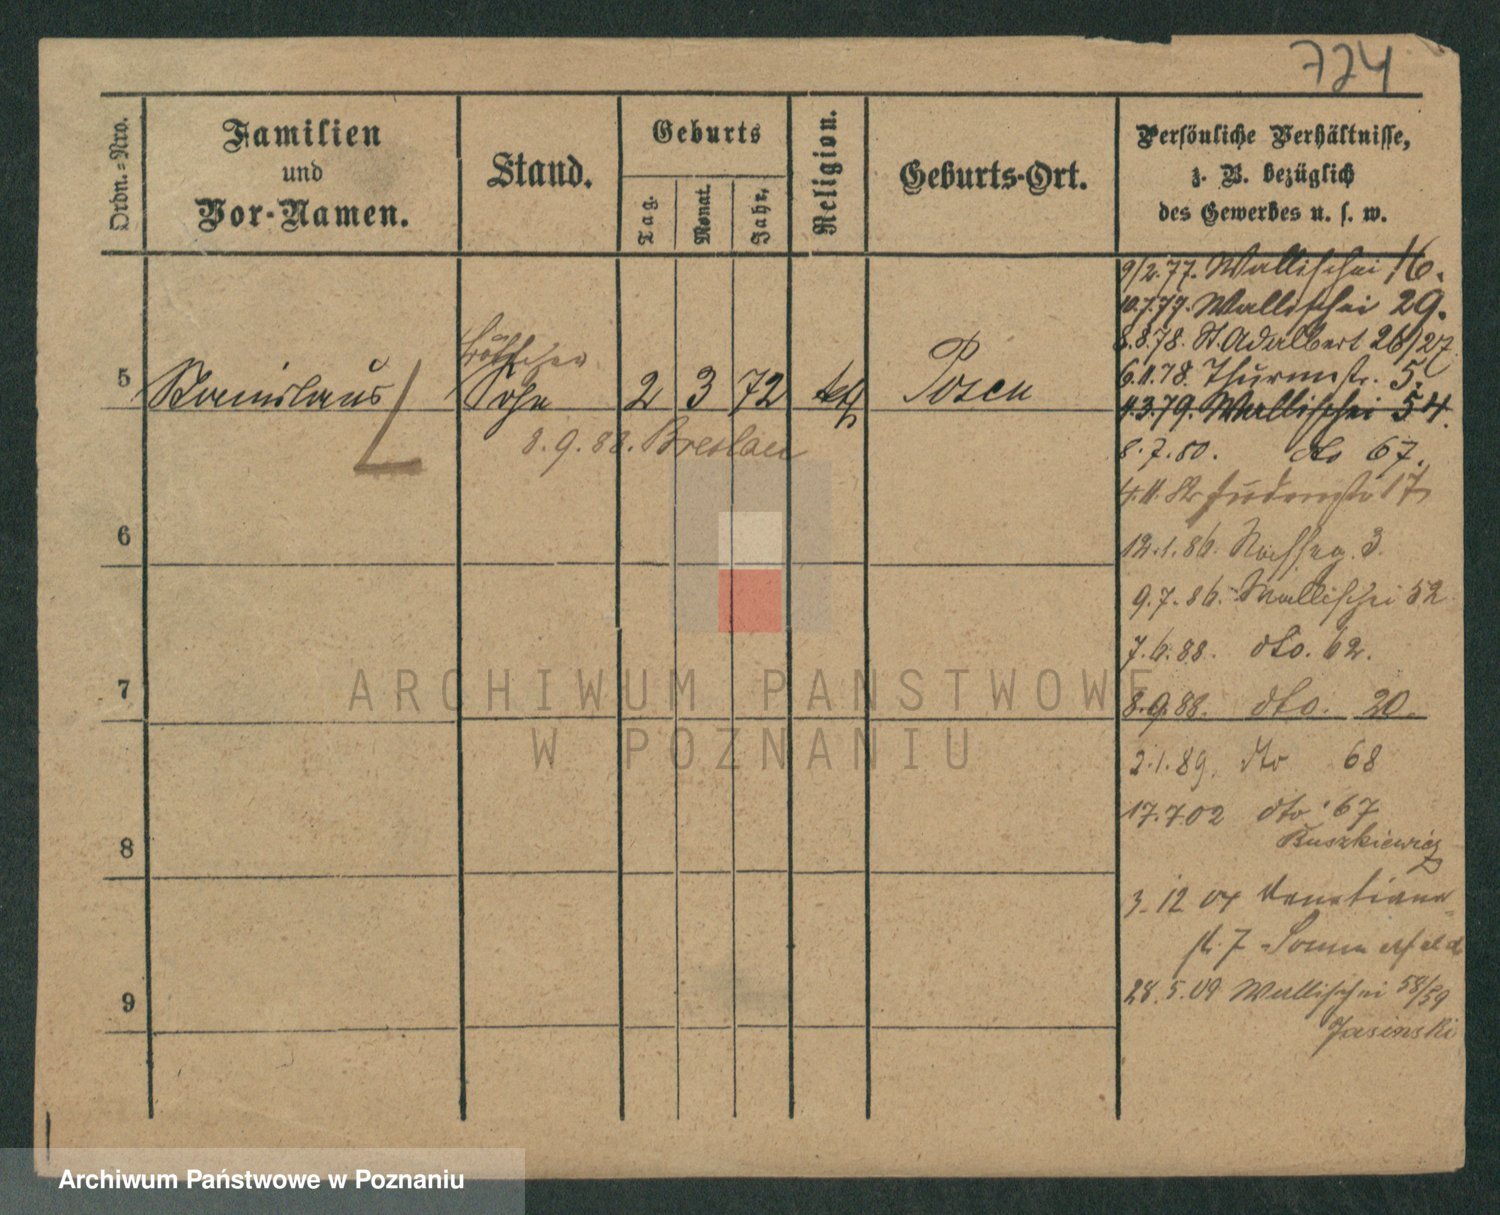 724
Ordn.-Nro.
Familien
und
Vor-Namen.
Stand.
Geburts
Tag.
Monat.
Jahr.
Religion.
Geburts-Ort.
Persönliche Verhältnisse,
z. B. bezüglich
des Gewerbes u. s. w.
5
Stanislaus
Sohn
2 3 72
kth
Posen
8.9.88. Breslau
6
7
8
9
9/2.77. Wallischei 16.
10.7.77. Wallischei 29.
8.8.78. St. Adalbert 26/27
6.11.78. Thurmstr. 5.
4.3.79. Wallischei 54.
8.7.80. dto 67.
17
12.1.86. 3.
9.7.86. Wallischei 52
7.6.88. dto. 62.
8.9.88. dto. 20.
2.1.89. dto 68
17.7.02 dto 67
Buszkiewicz
3.12 04 Venetianer
str. 7 Sommerfeld
28.5.09 Wallischei 58/59
Jasinski
ARCHIWUM PAŃSTWOWE
W POZNANIU
Archiwum Państwowe w Poznaniu